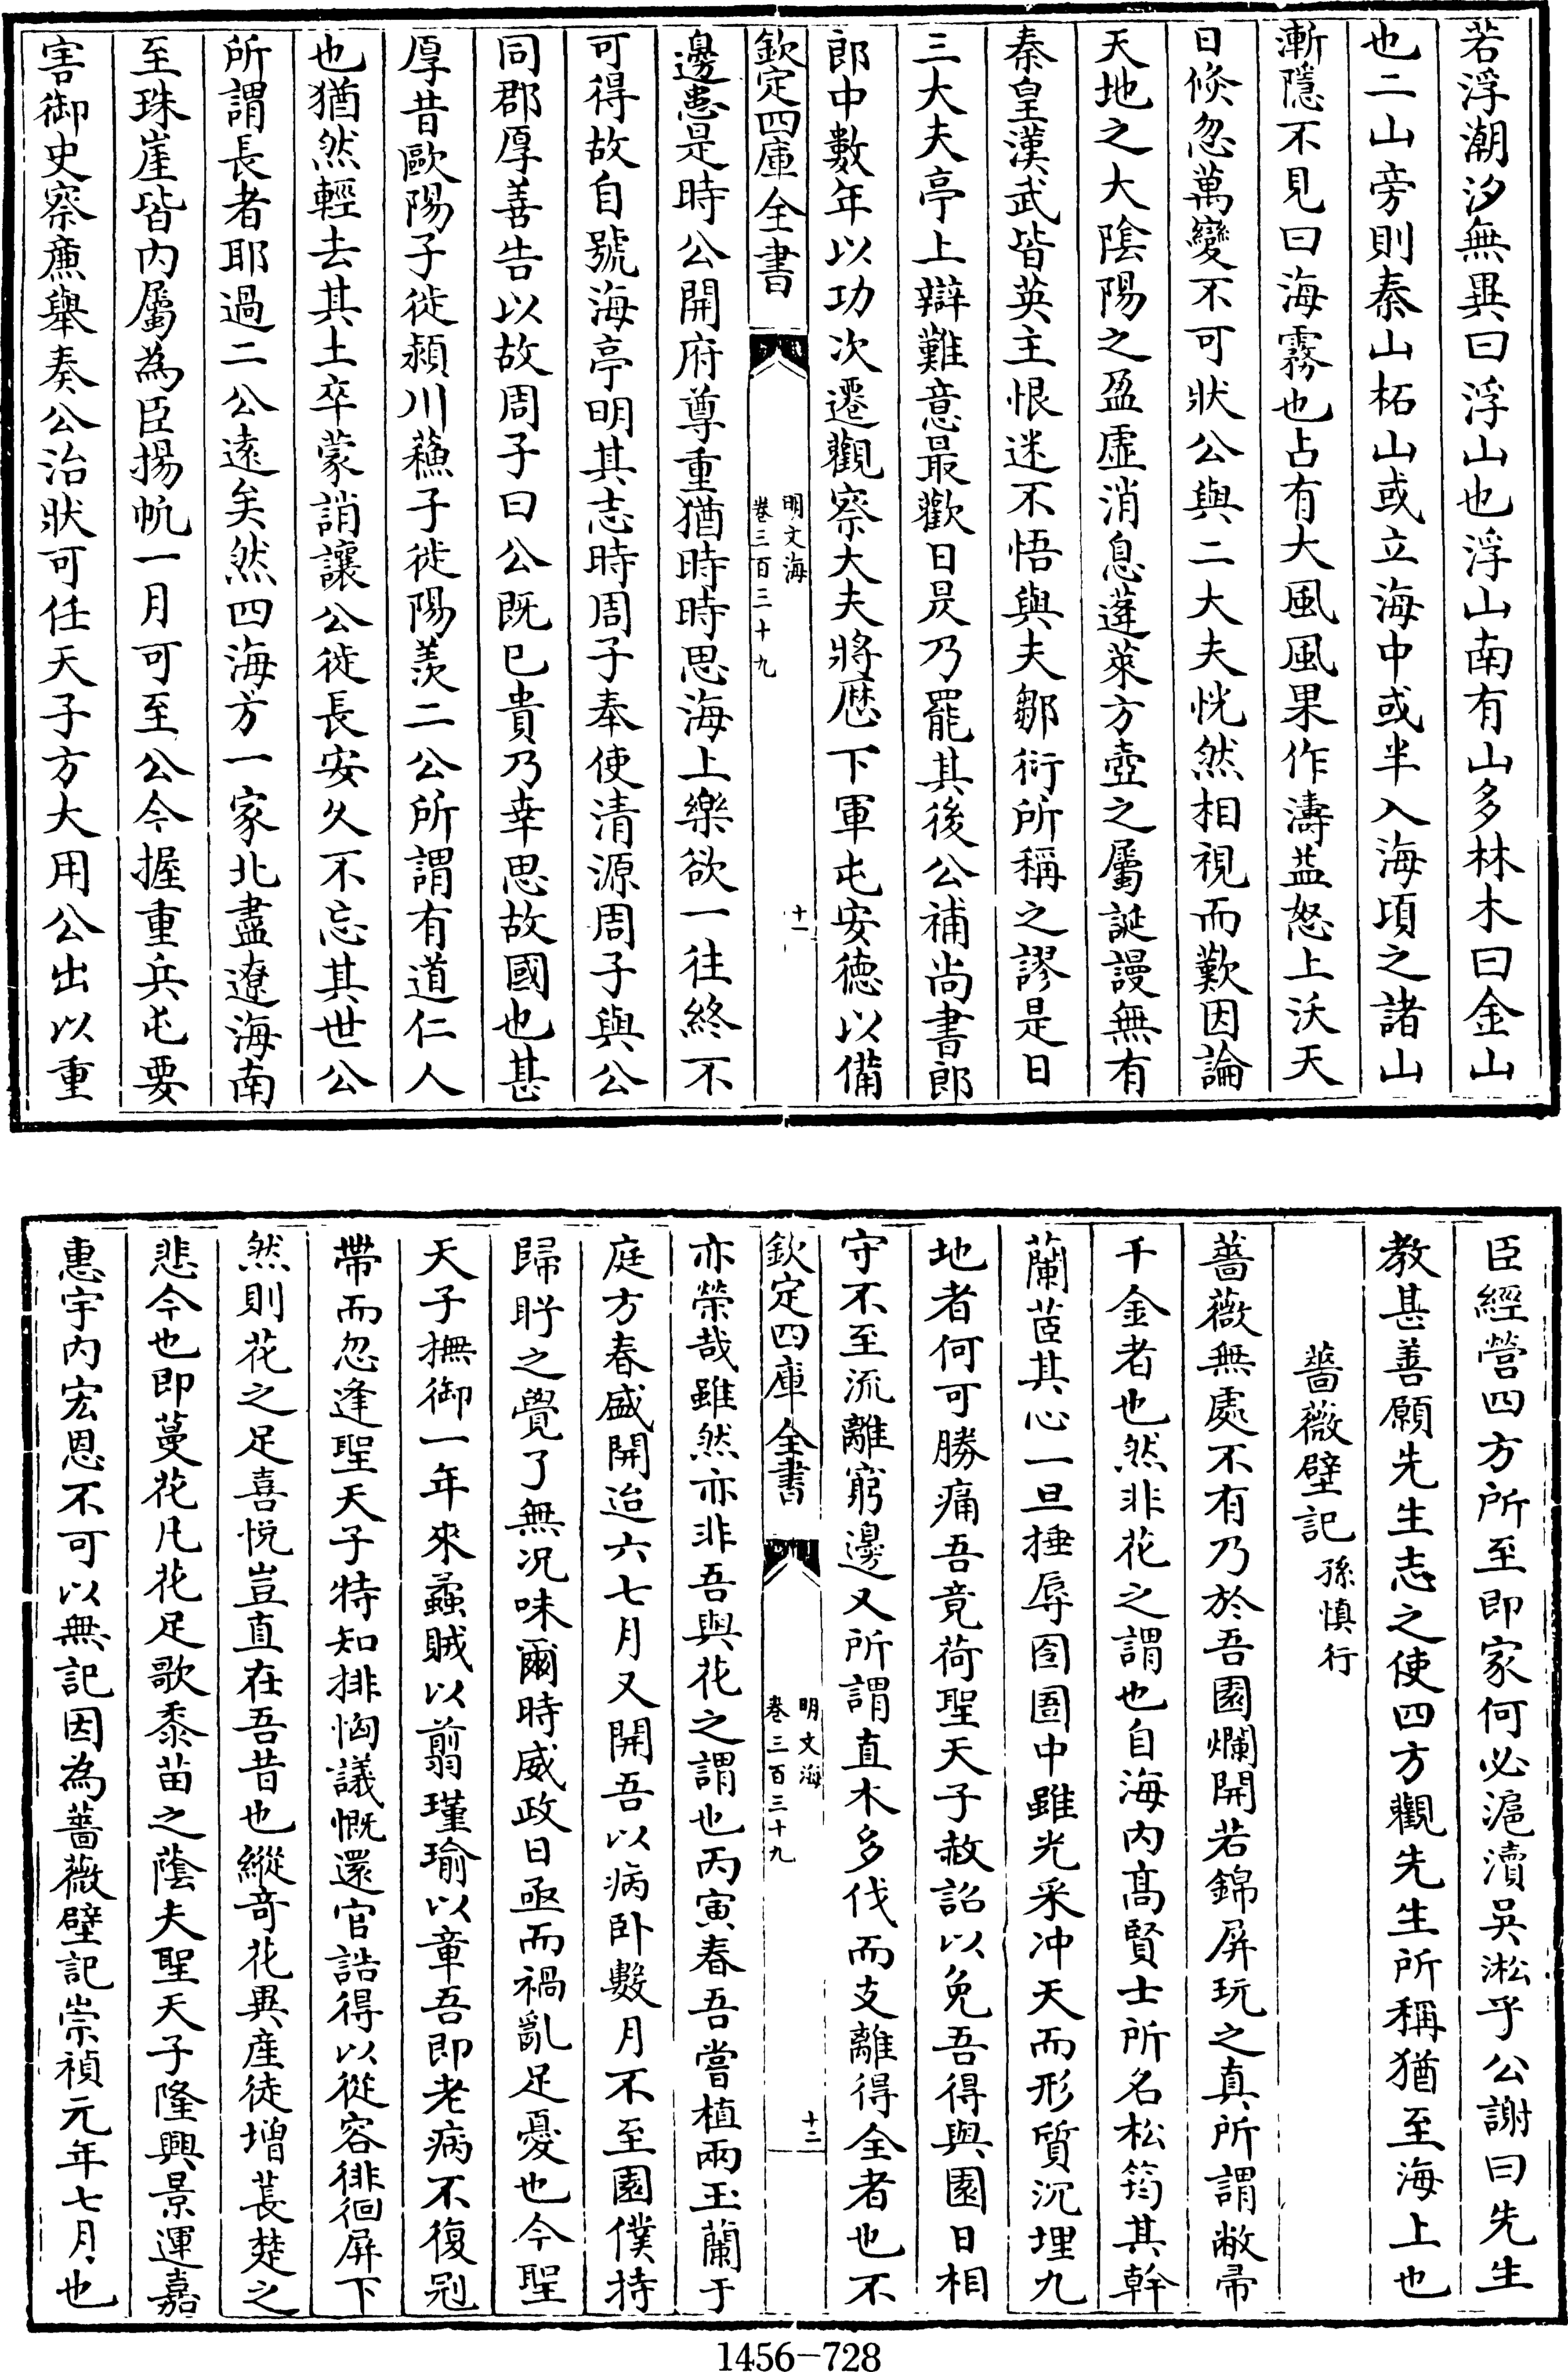 若浮潮汐無異曰浮山也浮山南有山多林木曰金山
也二山旁則秦山柘山或立海中或半入海頃之諸山
漸隱不見曰海霧也占有大風風果作濤益怒上沃天
日倐忽萬變不可狀公與二大夫恍然相視而歎因論
天地之大陰陽之盈虛消息蓬萊方壺之屬誕謾無有
秦皇漢武皆英主恨迷不悟與夫鄒衍所稱之謬是日
三大夫亭上辯難意最歡日昃乃罷其後公補尚書郎
郎中數年以功次遷觀察大夫將歷下軍屯安德以備
欽定四庫全書
明文海
卷三百三十九
十一
邊患是時公開府尊重猶時時思海上樂欲一往終不
可得故自號海亭明其志時周子奉使清源周子與公
同郡厚善告以故周子曰公既已貴乃幸思故國也甚
厚昔歐陽子徙潁川蘇子徙陽羨二公所謂有道仁人
也猶然輕去其土卒蒙誚讓公徙長安久不忘其世公
所謂長者耶過二公遠矣然四海方一家北盡遼海南
至珠崖皆内屬為臣揚帆一月可至公今握重兵屯要
害御史察廉舉奏公治狀可任天子方大用公出以重
臣經營四方所至即家何必滬瀆吳淞乎公謝曰先生
教甚善願先生志之使四方觀先生所稱猶至海上也
薔薇壁記孫慎行
薔薇無處不有乃於吾園爛開若錦屏玩之真所謂敝帚
千金者也然非花之謂也自海内髙賢士所名松筠其幹
蘭茝其心一旦捶辱囹圄中雖光采冲天而形質沉埋九
地者何可勝痛吾竟荷聖天子赦詔以免吾得與園日相
守不至流離窮邊又所謂直木多伐而支離得全者也不
欽定四庫全書
明文海
卷三百三十九
十二
亦榮哉雖然亦非吾與花之謂也丙寅春吾嘗植兩玉蘭于
庭方春盛開迨六七月又開吾以病卧數月不至園僕持
歸盻之覺了無况味爾時威政日亟而禍亂足憂也今聖
天子撫御一年來蟊賊以翦瑾瑜以章吾即老病不復冠
帶而忽逢聖天子特知排恟議慨還官誥得以從容徘徊屏下
然則花之足喜悦豈直在吾昔也縱竒花異産徒增萇楚之
悲今也即蔓花凡花足歌黍苗之蔭夫聖天子隆興景運嘉
惠宇内宏恩不可以無記因為薔薇壁記崇禎元年七月也
1456-728